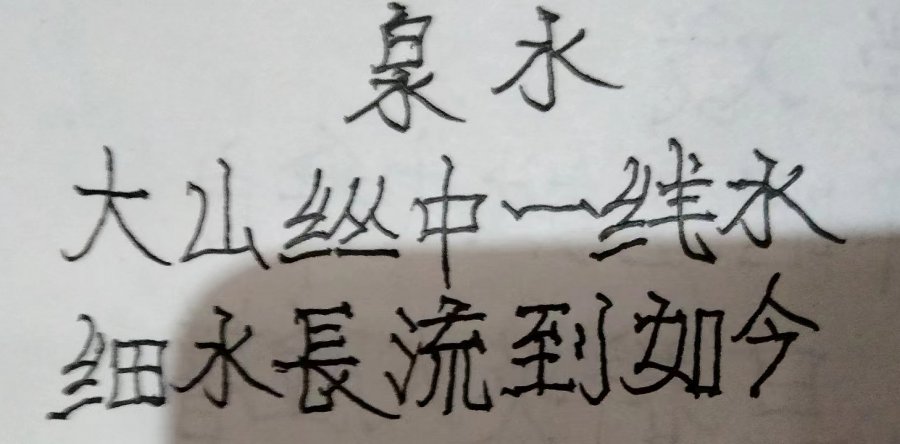 泉水
大山丛中一线水
细水長流到如今